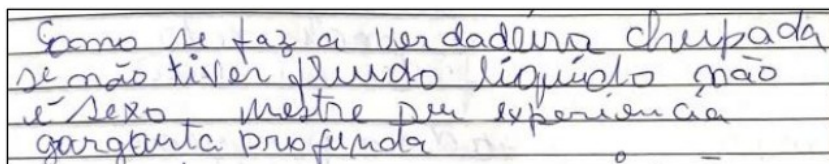 Como se faz a verdadeira chupada
se não tiver fluido líquido não
é sexo mestre
experiencia
garganta profunda